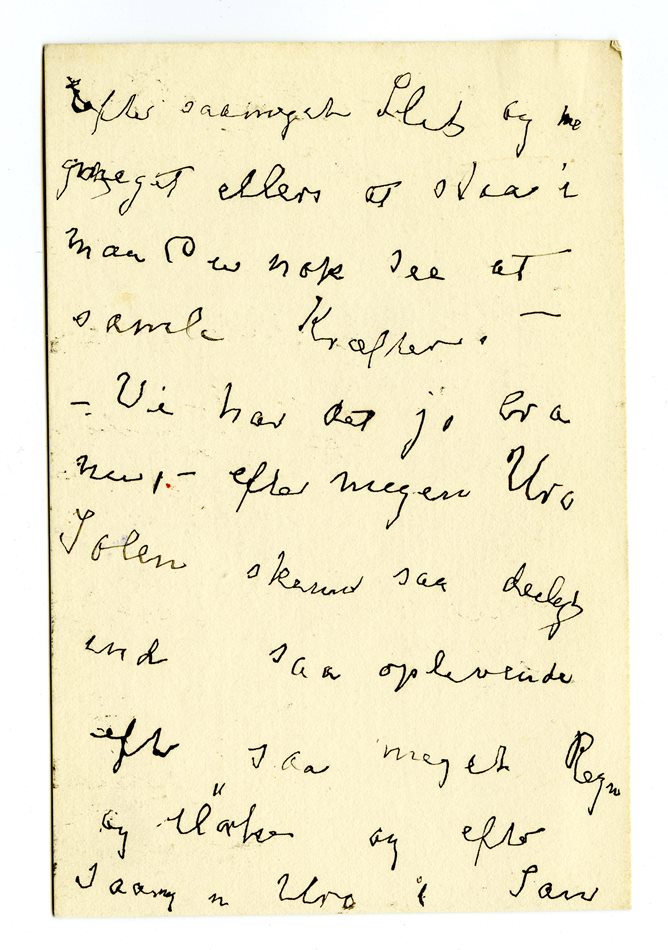 efter saameget Slit og me
get ellers at staa i
maa Du nok see at
samle Kræfter. —
– Vi har det jo bra
nu, – efter megen Uro
Solen skinner saa deiligt
ind saa oplivende
efter saa meget Regn
og Mörke og efter
saamegen Uro i Sand